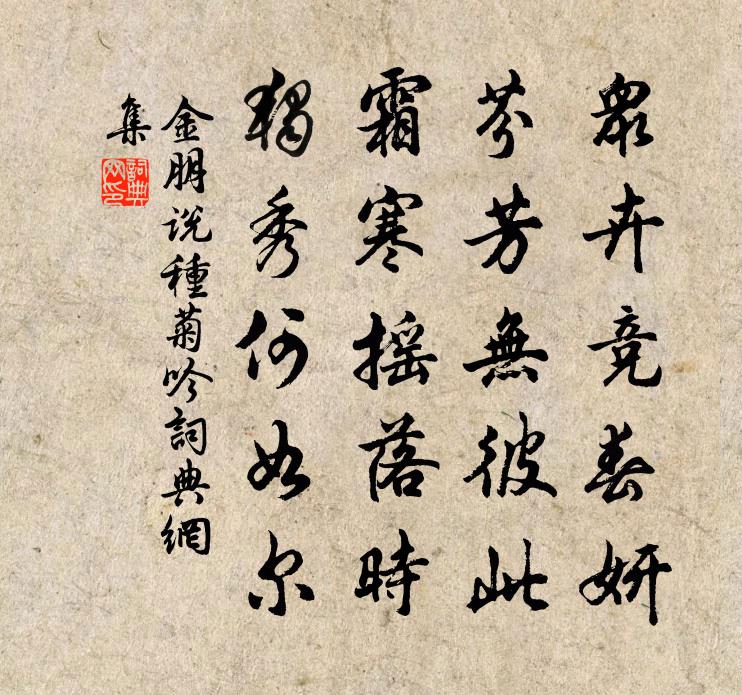 眾卉競春妍
芬芳無彼此
霜寒摇落時
獨秀何如尔
金朋说種菊吟詞典網
集
詞典網印